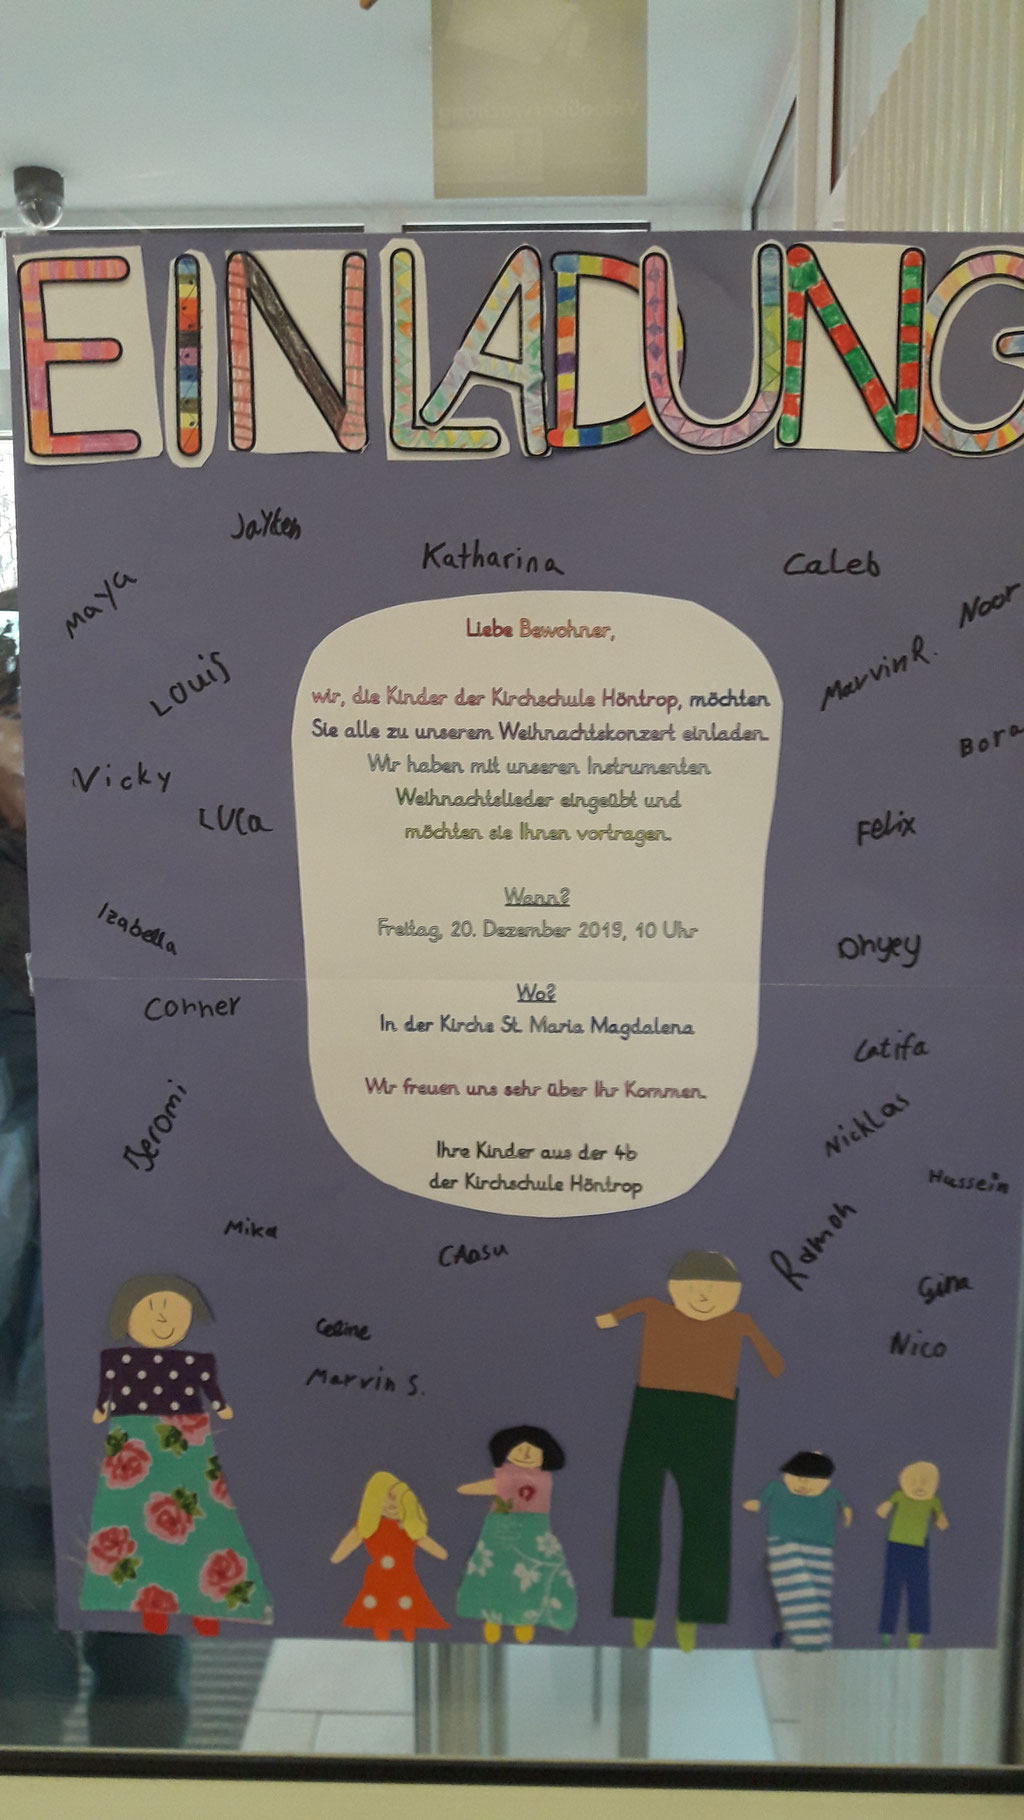 EINLADUNG
Jayken
Katharina
Caleb
Maya
Noor
Louis
Marvin R.
Bora
Vicky
Luca
Felix
Izabella
Dhyey
Conner
Latifa
Jeromi
Nicklas
Hussein
Mika
Ramoh
Gina
Celine
Nico
Marvin S.
Liebe Bewohner,
wir, die Kinder der Kirchschule Höntrop, möchten
Sie alle zu unserem Weihnachtskonzert einladen.
Wir haben mit unseren Instrumenten
Weihnachtslieder eingeübt und
möchten sie Ihnen vortragen.
Wann?
Freitag, 20. Dezember 2019, 10 Uhr
Wo?
In der Kirche St. Maria Magdalena
Wir freuen uns sehr über Ihr Kommen.
Ihre Kinder aus der 4b
der Kirchschule Höntrop